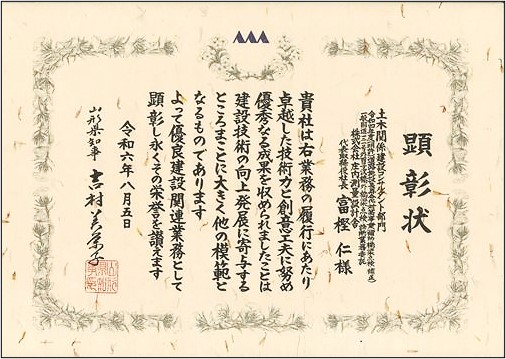 顕彰状
土木関係建設コンサルタント部門
株式会社 庄内測量設計舎
代表取締役社長 富樫 仁 様
貴社は右業務の履行にあたり
卓越した技術力と創意工夫に努め
優秀なる成果を収められましたことは
建設技術の向上発展に寄与する
ところまことに大きく他の模範と
なるものであります
よって優良建設関連業務として
顕彰し永くその栄誉を讃えます
令和六年八月五日
山形県知事 吉村美栄子